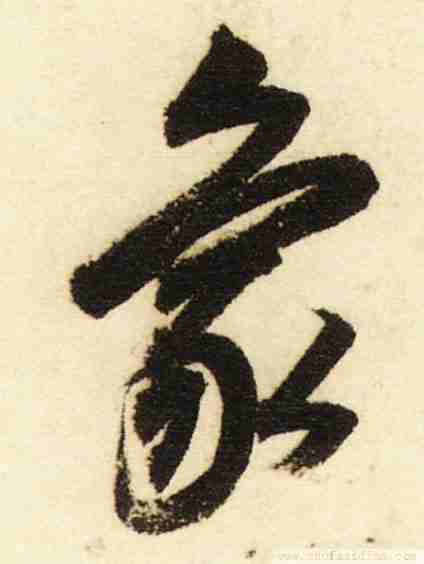 象
www.shufazidian.com